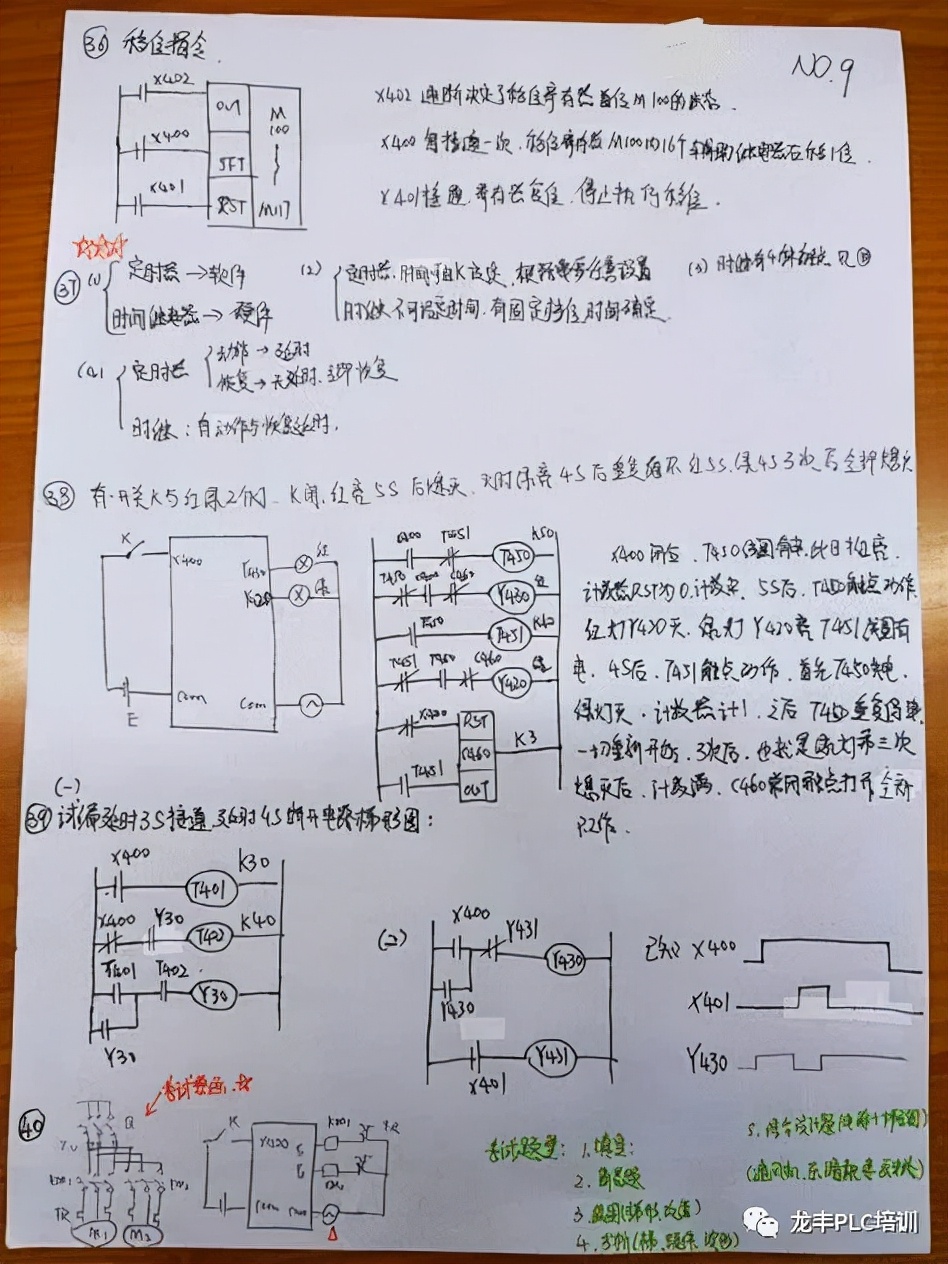 NO.9
㊱ 移位指令
X402
OUT
M
100
X400
SFT
X401
RST
M117
X402通断决定了移位寄存器首位M100的状态.
X400每接通一次, 移位寄存器M100的16个辅助继电器右移1位.
X401接通, 寄存器复位, 停止执行移位.
㊲ (1) 定时器→软件
时间继电器→硬件
(2) 定时器, 时间可由K设定, 根据需要任意设置
时继不可设定时间, 有固定档位, 时间确定.
(3) 时继有4种触点
定时器
动作→延时
恢复→无延时, 立即恢复
时继: 有动作与恢复延时.
㊳ 有一开关K与红绿2个灯. K闭, 红亮5S后熄灭, 同时绿亮4S后重复循环红5S, 绿4S 3次后全部熄灭
K
X400
红
绿
Com
Com
E
X400
T451
T450
K50
T450
X400
C460
Y430
红
T450
T451
K40
T451
T450
C460
Y420
绿
X400
RST
C460
K3
T451
OUT
X400闭合, T450线圈有电, 此时红亮,
计数器RST为0, 计数来, 5S后, T450触点动作,
红灯Y430灭, 绿灯Y420亮 T451线圈有
电, 4S后, T451触点动作, 首先T450失电,
绿灯灭, 计数器计1, 之后T450重复得电,
一切重新开始, 3次后, 也就是绿灯第三次
熄灭后, 计数满, C460常闭触点打开, 全部
不工作.
(一)
㊴ 试编延时3S接通, 延时4S断开电路梯形图:
X400
K30
T401
X400
Y30
K40
T402
T401
T402
Y30
Y30
(二)
X400
Y431
Y430
Y430
Y431
X401
已知 X400
X401
Y430
㊵
考试要画.☆
Q
FR
M1
M2
K
X400
Com
Com
考试题型: 1. 填空:
2. 简答题
3. 画图(梯形, 改错)
4. 分析(梯, 程序, 波形)
龙丰PLC培训